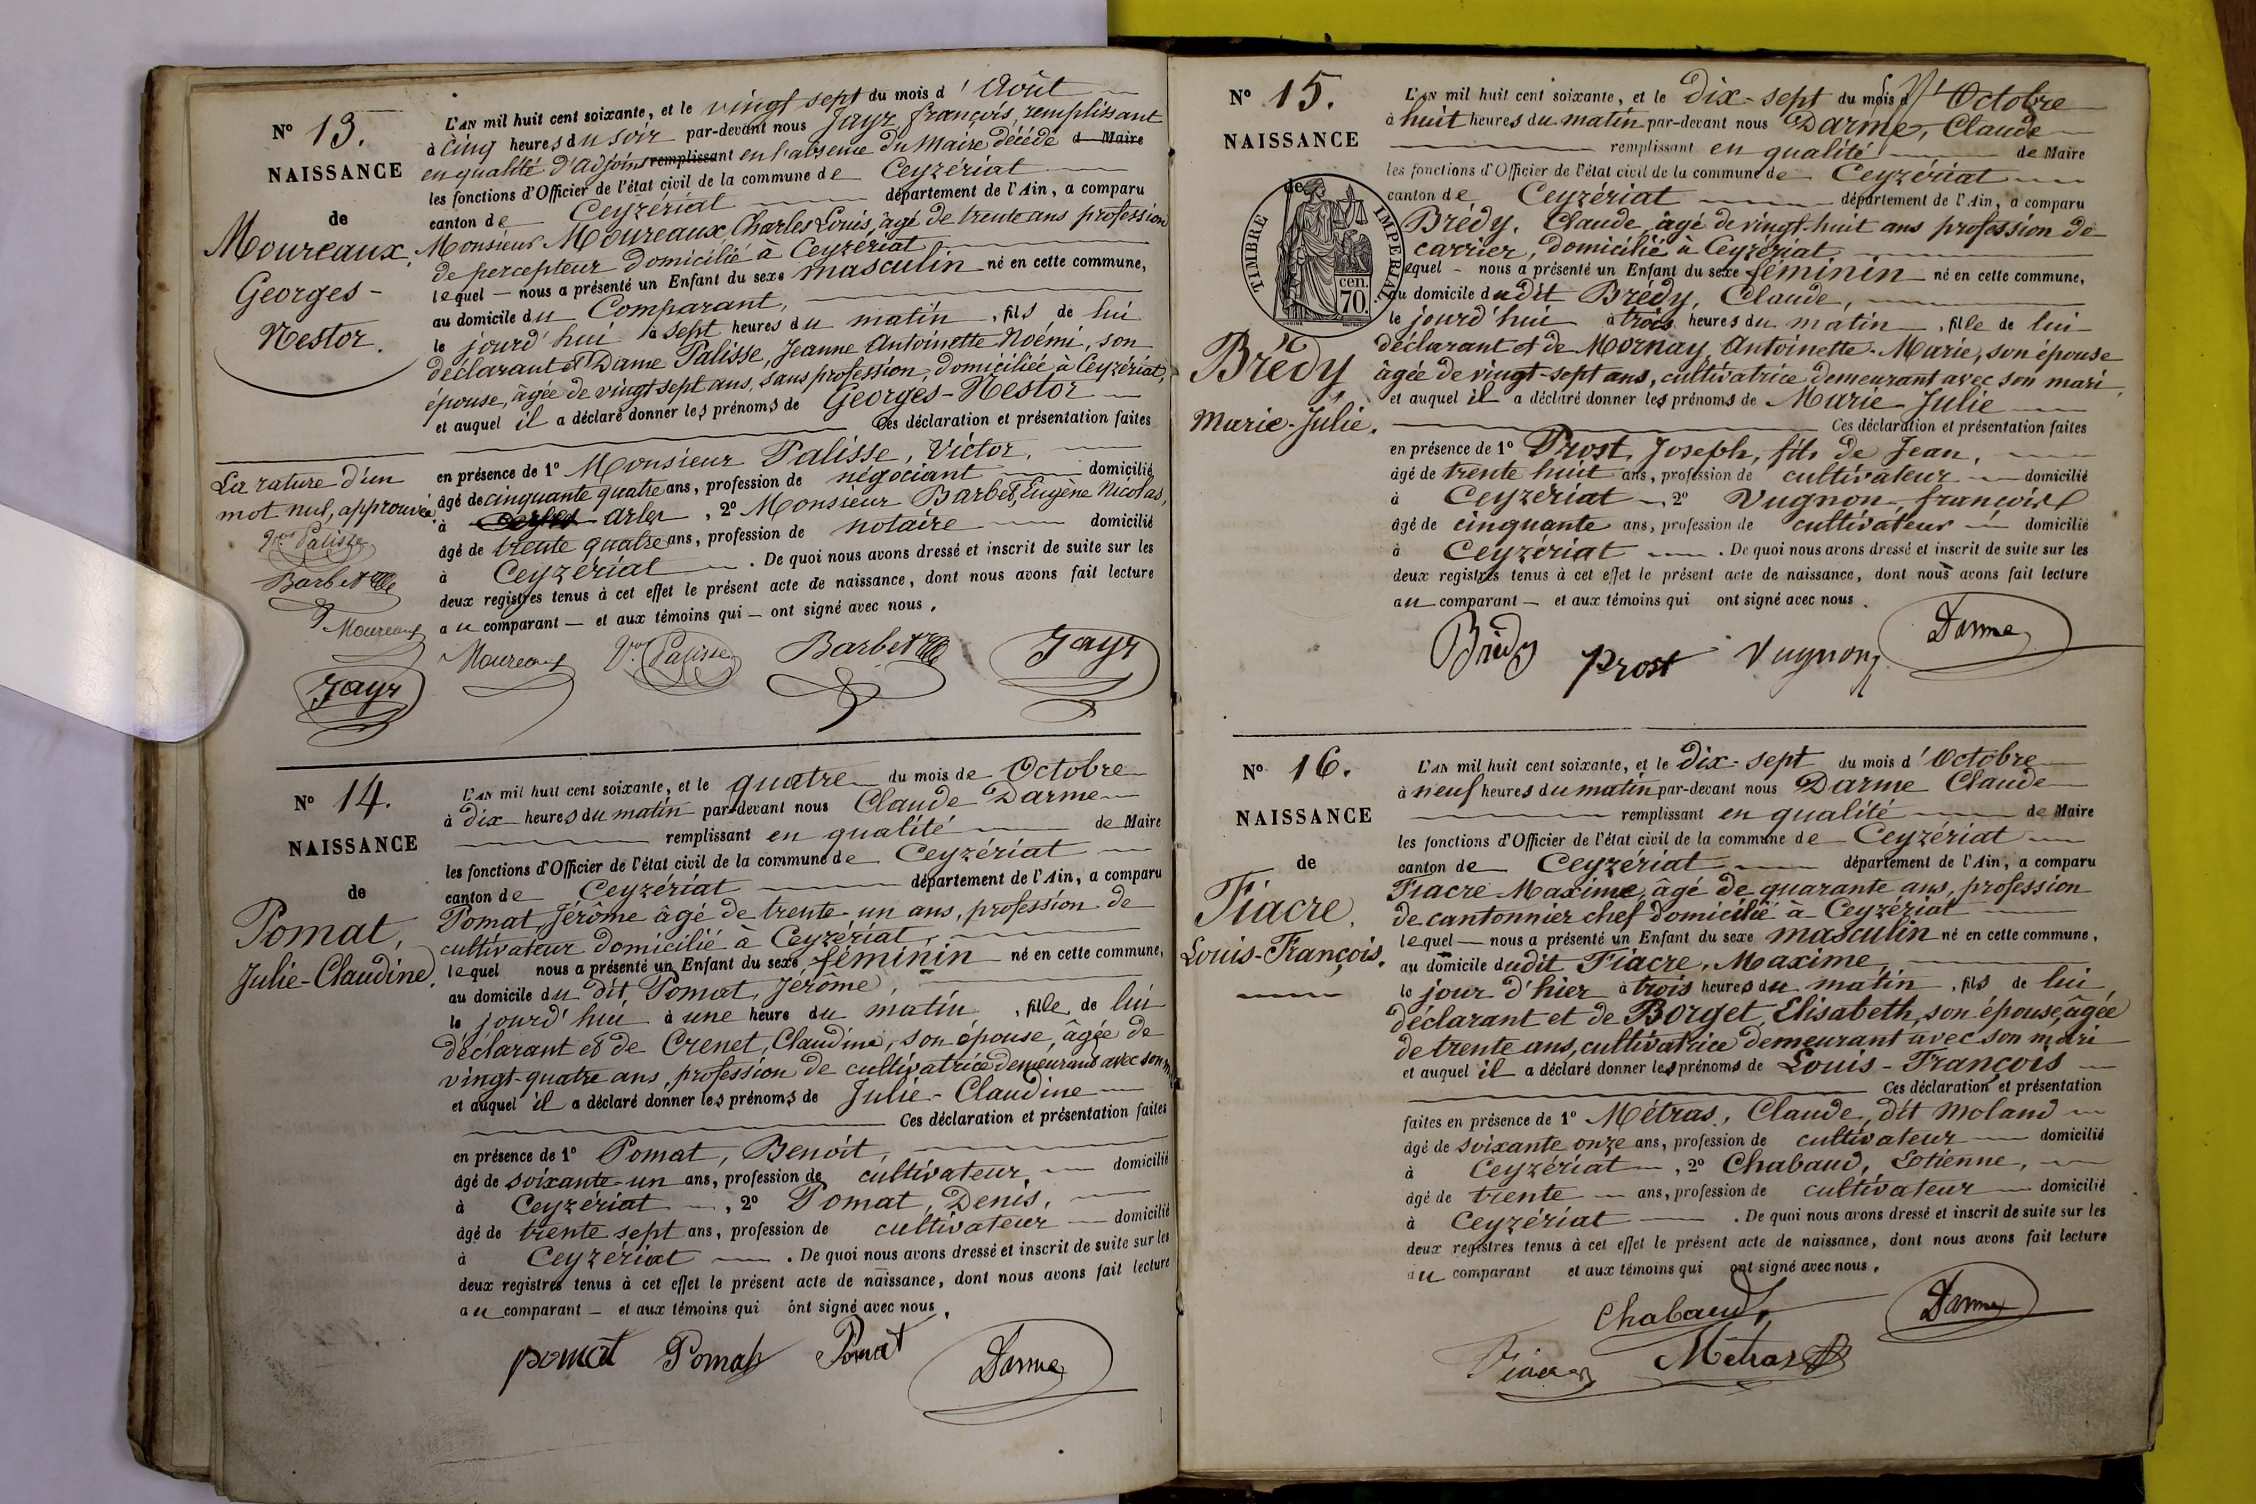 N° 13.
NAISSANCE
de
Moureaux,
Georges-
Nestor.
L'AN mil huit cent soixante, et le vingt sept du mois d'Août
à cinq heures du soir par-devant nous Jayr françois, remplissant
en qualité d'adjoint remplissant en l'absence du Maire décédé d Maire
les fonctions d'Officier de l'état civil de la commune de Ceyzériat
canton de Ceyzériat département de l'Ain, a comparu
Monsieur Moureaux, Charles Louis, âgé de trente ans profession
de percepteur domicilié à Ceyzériat
lequel nous a présenté un Enfant du sexe masculin né en cette commune,
au domicile du Comparant,
le jourd'hui à sept heures du matin, fils de lui
déclarant et Dame Palisse, Jeanne Antoinette Noémi, son
épouse, âgée de vingt sept ans, sans profession, domiciliée à Ceyzériat,
et auquel il a déclaré donner les prénoms de Georges-Nestor
Ces déclaration et présentation faites
en présence de 1° Monsieur Palisse, Victor,
âgé de cinquante quatre ans, profession de négociant domicilié
à arler, 2° Monsieur Barbet, Eugène Nicolas,
âgé de trente quatre ans, profession de notaire domicilié
à Ceyzériat. De quoi nous avons dressé et inscrit de suite sur les
deux registres tenus à cet effet le présent acte de naissance, dont nous avons fait lecture
au comparant — et aux témoins qui — ont signé avec nous.
La rature d'un
mot nul, approuvée
Vor Palisse
Barbet
Moureaux
Jayr
Moureaux Vor Palisse Barbet Jayr
N° 14.
NAISSANCE
de
Pomat,
Julie-Claudine.
L'AN mil huit cent soixante, et le quatre du mois de Octobre
à dix heures du matin par-devant nous Claude Darme
remplissant en qualité de Maire
les fonctions d'Officier de l'état civil de la commune de Ceyzériat
canton de Ceyzériat département de l'Ain, a comparu
Pomat Jérôme âgé de trente-un ans, profession de
cultivateur domicilié à Ceyzériat,
lequel nous a présenté un Enfant du sexe féminin né en cette commune,
au domicile du dit Pomat, Jérôme,
le jourd'hui à une heure du matin, fille de lui
déclarant et de Crenet, Claudine, son épouse, âgée de
vingt-quatre ans, profession de cultivatrice demeurant avec son
et auquel il a déclaré donner les prénoms de Julie-Claudine
Ces déclaration et présentation faites
en présence de 1° Pomat, Benoit,
âgé de soixante-un ans, profession de cultivateur, domicilié
à Ceyzériat, 2° Pomat, Denis,
âgé de trente sept ans, profession de cultivateur domicilié
à Ceyzériat. De quoi nous avons dressé et inscrit de suite sur les
deux registres tenus à cet effet le présent acte de naissance, dont nous avons fait lecture
au comparant — et aux témoins qui ont signé avec nous.
pomat Pomat Pomat Darme
N° 15.
NAISSANCE
de
TIMBRE IMPERIAL
cen.
70.
Brédy
Marie-Julie.
L'AN mil huit cent soixante, et le dix-sept du mois d'Octobre
à huit heures du matin par-devant nous Darme, Claude
remplissant en qualité de Maire
les fonctions d'Officier de l'état civil de la commune de Ceyzériat
canton de Ceyzériat département de l'Ain, a comparu
Brédy, Claude, âgé de vingt-huit ans profession de
carrier, domicilié à Ceyzériat
lequel — nous a présenté un Enfant du sexe féminin né en cette commune,
au domicile dudit Brédy, Claude,
le jourd'hui à trois heures du matin, fille de lui
déclarant et de Mornay, Antoinette-Marie, son épouse
âgée de vingt-sept ans, cultivatrice demeurant avec son mari
et auquel il a déclaré donner les prénoms de Marie-Julie
Ces déclaration et présentation faites
en présence de 1° Prost, Joseph, fils de Jean,
âgé de trente huit ans, profession de cultivateur domicilié
à Ceyzériat, 2° Vugnon, françois
âgé de cinquante ans, profession de cultivateur domicilié
à Ceyzériat. De quoi nous avons dressé et inscrit de suite sur les
deux registres tenus à cet effet le présent acte de naissance, dont nous avons fait lecture
au comparant — et aux témoins qui ont signé avec nous.
Brédy Prost Vugnon Darme
N° 16.
NAISSANCE
de
Fiacre,
Louis-François.
L'AN mil huit cent soixante, et le dix-sept du mois d'Octobre
à neuf heures du matin par-devant nous Darme Claude
remplissant en qualité de Maire
les fonctions d'Officier de l'état civil de la commune de Ceyzériat
canton de Ceyzériat département de l'Ain, a comparu
Fiacre Maxime, âgé de quarante ans, profession
de cantonnier chef domicilié à Ceyzériat
lequel — nous a présenté un Enfant du sexe masculin né en cette commune,
au domicile dudit Fiacre, Maxime,
le jour d'hier à trois heures du matin, fils de lui,
déclarant et de Borget, Elisabeth, son épouse, âgée
de trente ans, cultivatrice demeurant avec son mari
et auquel il a déclaré donner les prénoms de Louis-François
Ces déclaration et présentation
faites en présence de 1° Métras, Claude, dit Moland
âgé de soixante onze ans, profession de cultivateur domicilié
à Ceyzériat, 2° Chabaud, Etienne,
âgé de trente ans, profession de cultivateur domicilié
à Ceyzériat. De quoi nous avons dressé et inscrit de suite sur les
deux registres tenus à cet effet le présent acte de naissance, dont nous avons fait lecture
au comparant et aux témoins qui ont signé avec nous.
Chabaud Darme
Fiacre Métras